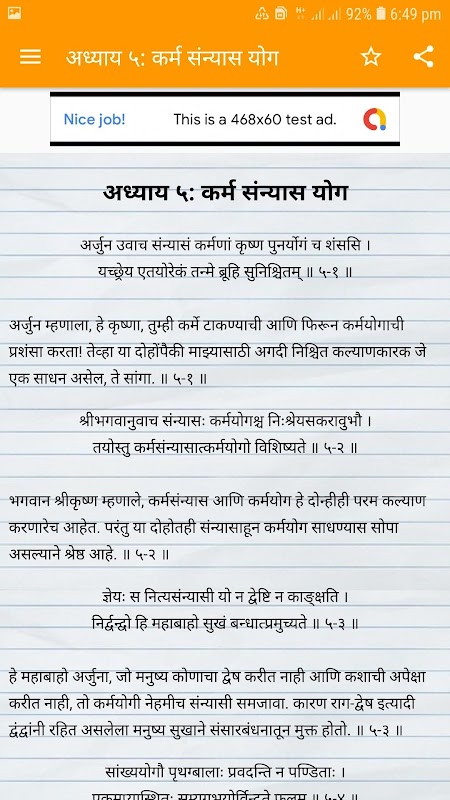 92% 6:49 pm
अध्याय ५: कर्म संन्यास योग
Nice job! This is a 468x60 test ad.
अध्याय ५: कर्म संन्यास योग
अर्जुन उवाच संन्यासं कर्मणां कृष्ण पुनर्योगं च शंससि ।
यच्छ्रेय एतयोरेकं तन्मे ब्रूहि सुनिश्चितम् ॥ ५-१ ॥
अर्जुन म्हणाला, हे कृष्णा, तुम्ही कर्मे टाकण्याची आणि फिरून कर्मयोगाची
प्रशंसा करता! तेव्हा या दोहोंपैकी माझ्यासाठी अगदी निश्चित कल्याणकारक जे
एक साधन असेल, ते सांगा. ॥ ५-१ ॥
श्रीभगवानुवाच संन्यासः कर्मयोगश्च निःश्रेयसकरावुभौ ।
तयोस्तु कर्मसंन्यासात्कर्मयोगो विशिष्यते ॥ ५-२ ॥
भगवान श्रीकृष्ण म्हणाले, कर्मसंन्यास आणि कर्मयोग हे दोन्हीही परम कल्याण
करणारेच आहेत. परंतु या दोहोतही संन्यासाहून कर्मयोग साधण्यास सोपा
असल्याने श्रेष्ठ आहे. ॥ ५-२ ॥
ज्ञेयः स नित्यसंन्यासी यो न द्वेष्टि न काङ्क्षति ।
निर्द्वन्द्वो हि महाबाहो सुखं बन्धात्प्रमुच्यते ॥ ५-३ ॥
हे महाबाहो अर्जुना, जो मनुष्य कोणाचा द्वेष करीत नाही आणि कशाची अपेक्षा
करीत नाही, तो कर्मयोगी नेहमीच संन्यासी समजावा. कारण राग-द्वेष इत्यादी
द्वंद्वांनी रहित असलेला मनुष्य सुखाने संसारबंधनातून मुक्त होतो. ॥ ५-३ ॥
सांख्ययोगौ पृथग्बालाः प्रवदन्ति न पण्डिताः ।
एकमप्यास्थितः सम्यगुभयोर्विन्दते फलम् ॥ ५-४ ॥